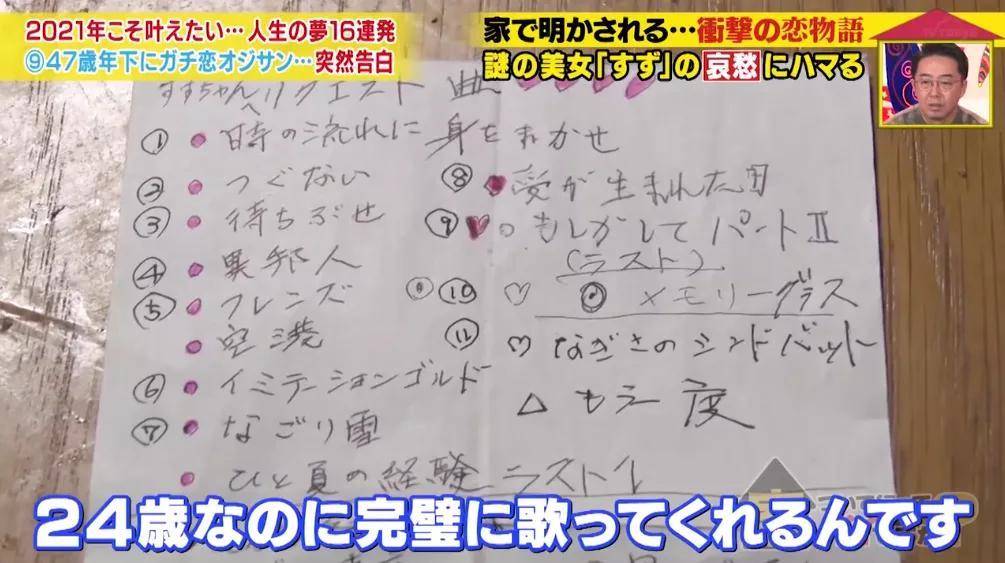 2021年こそ叶えたい…人生の夢16連発
⑨47歳年下にガチ恋オジサン…突然告白
家で明かされる…衝撃の恋物語
謎の美女「すず」の哀愁にハマる
すずちゃんへリクエスト 曲
① 時の流れに 身をまかせ
② つぐない
③ 待ちぶせ
④ 異邦人
⑤ フレンズ
空港
⑥ イミテーションゴルド
⑦ なごり雪
ひと夏の経験 ラスト1
⑧ 愛が生まれた日
⑨ もしかして パートⅡ
(ラスト)
⑩ ◎ メモリーグラス
⑪ なぎさのシンドバット
△ もう一度
24歳なのに完璧に歌ってくれるんです